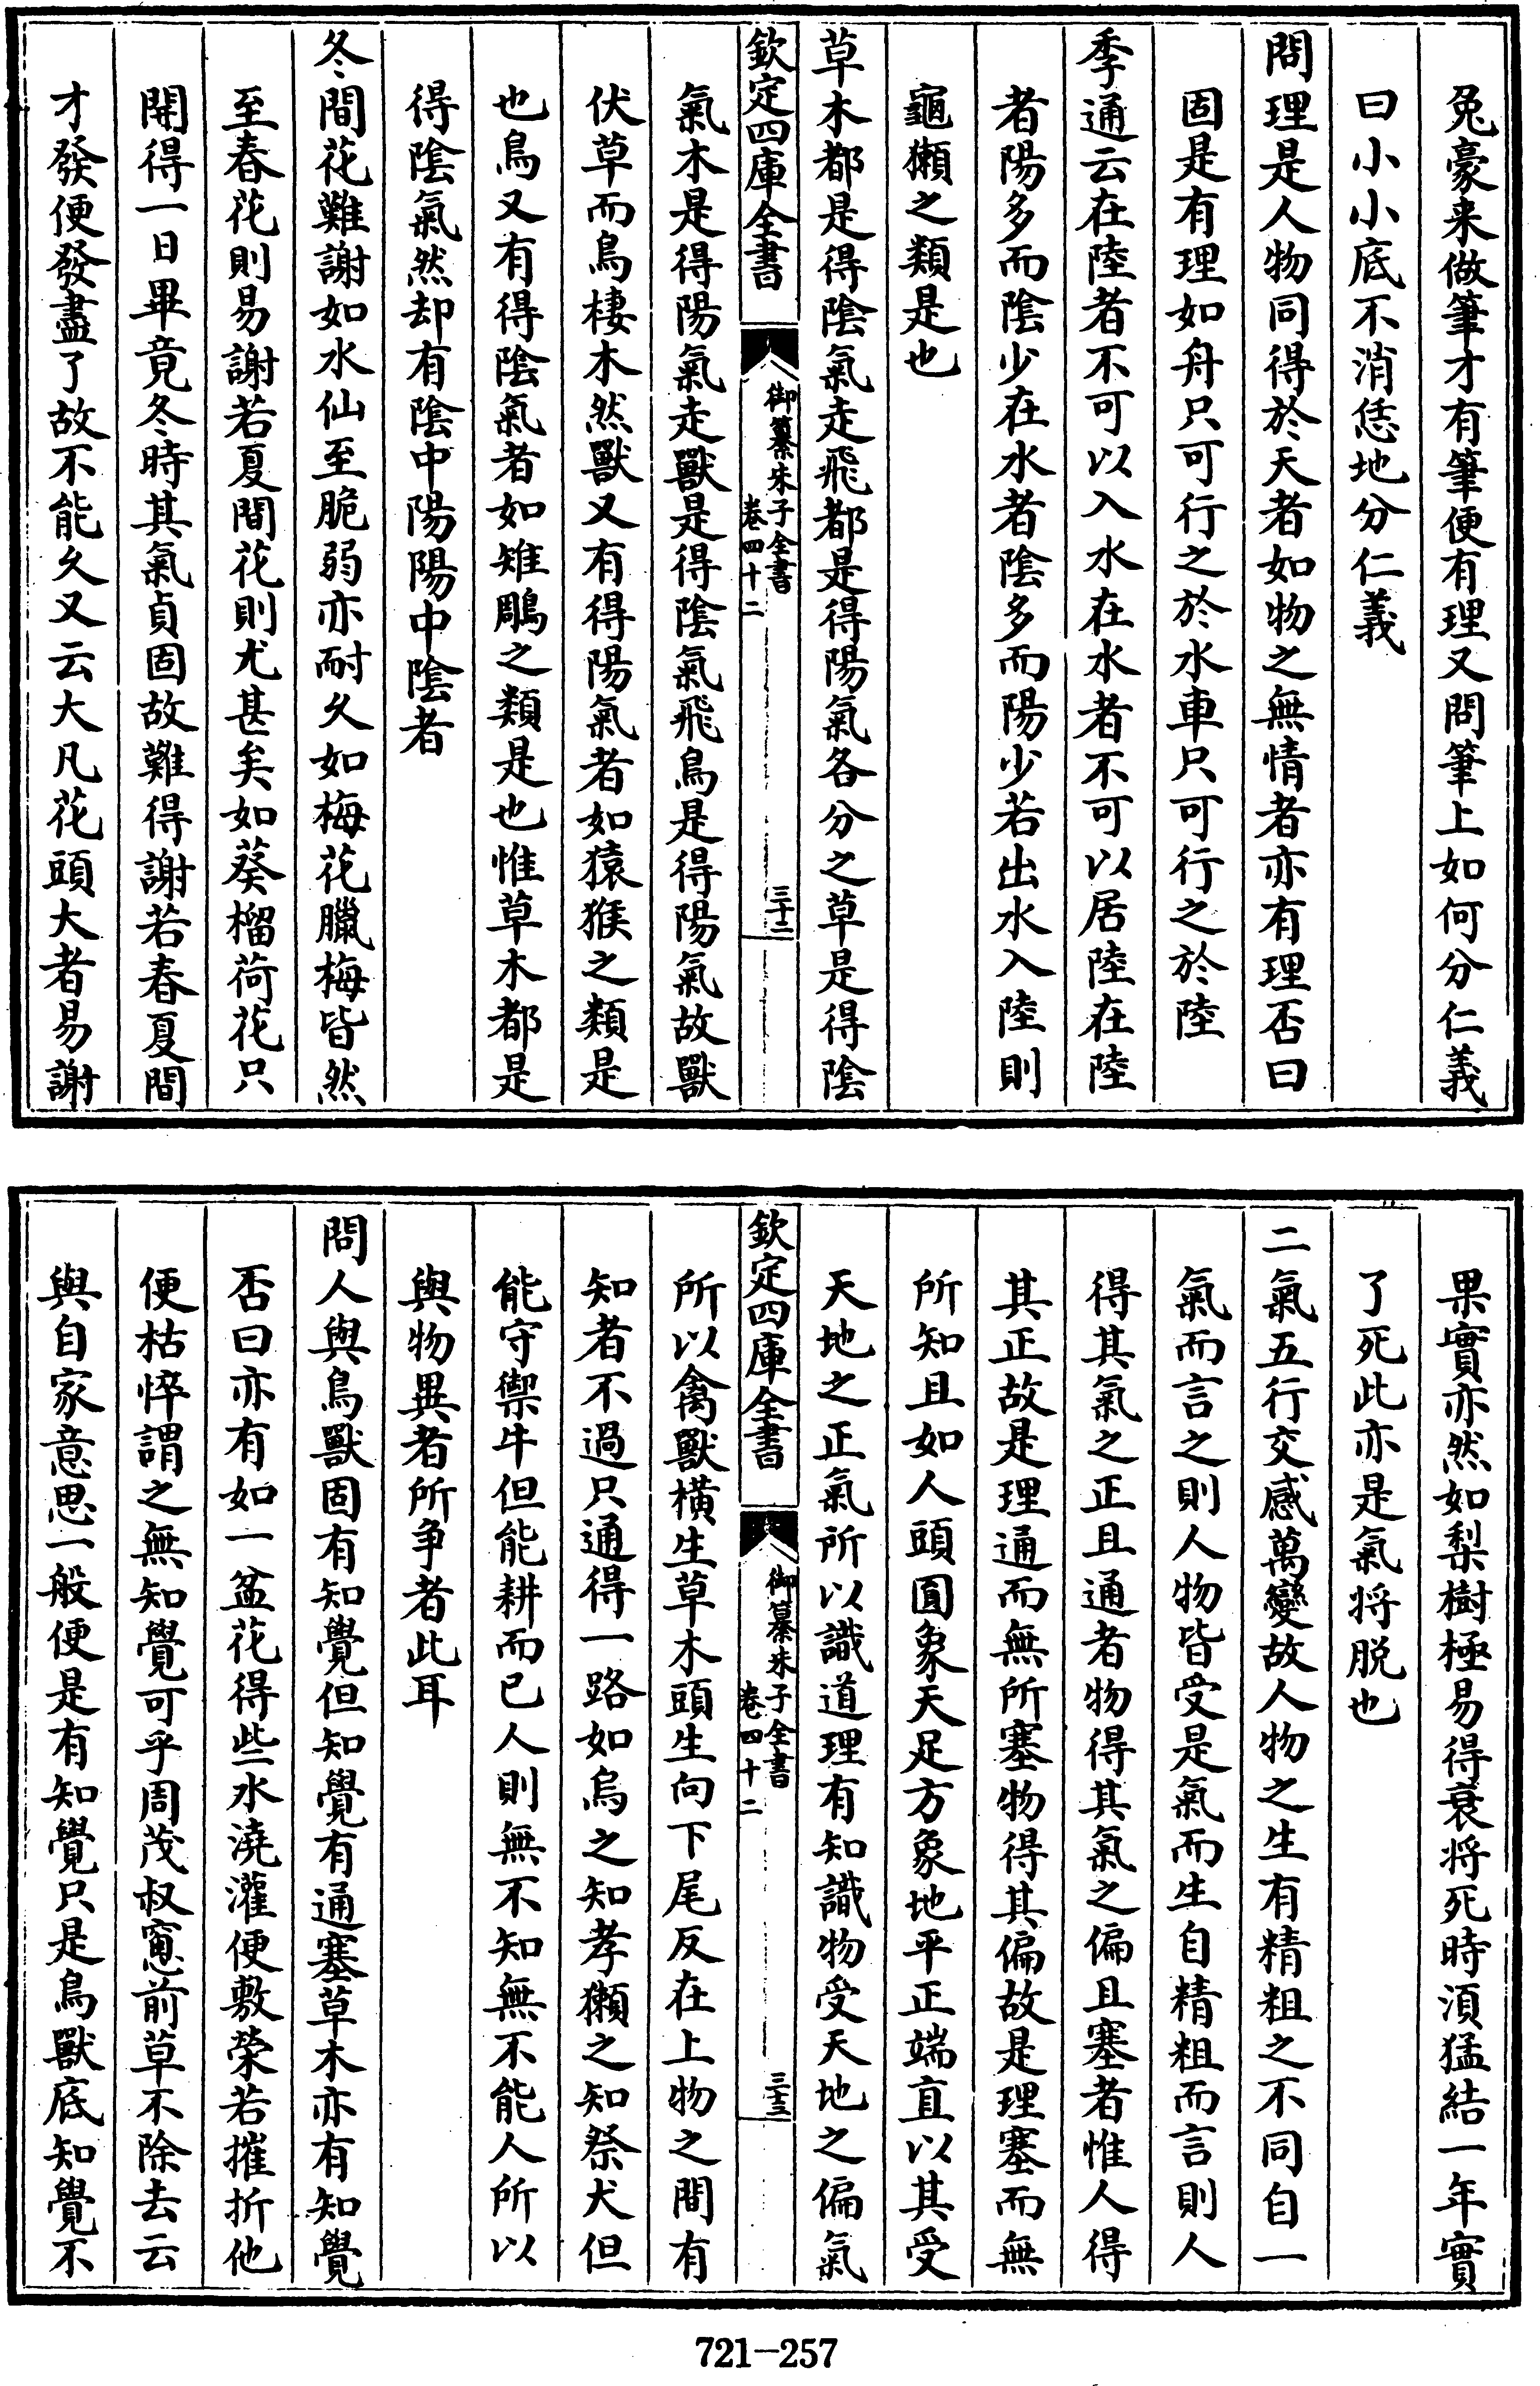 兔豪来做筆才有筆便有理又問筆上如何分仁義
曰小小底不消恁地分仁義
問理是人物同得於天者如物之無情者亦有理否曰
固是有理如舟只可行之於水車只可行之於陸
季通云在陸者不可以入水在水者不可以居陸在陸
者陽多而陰少在水者陰多而陽少若出水入陸則
龜獺之類是也
草木都是得陰氣走飛都是得陽氣各分之草是得陰
欽定四庫全書
御纂朱子全書
卷四十二
三十二
氣木是得陽氣走獸是得陰氣飛鳥是得陽氣故獸
伏草而鳥棲木然獸又有得陽氣者如猿猴之類是
也鳥又有得陰氣者如雉鵰之類是也惟草木都是
得陰氣然却有陰中陽陽中陰者
冬間花難謝如水仙至脆弱亦耐久如梅花臘梅皆然
至春花則易謝若夏間花則尤甚矣如葵榴荷花只
開得一日畢竟冬時其氣貞固故難得謝若春夏間
才發便發盡了故不能久又云大凡花頭大者易謝
果實亦然如梨樹極易得衰将死時湏猛結一年實
了死此亦是氣将脱也
二氣五行交感萬變故人物之生有精粗之不同自一
氣而言之則人物皆受是氣而生自精粗而言則人
得其氣之正且通者物得其氣之偏且塞者惟人得
其正故是理通而無所塞物得其偏故是理塞而無
所知且如人頭圓象天足方象地平正端直以其受
天地之正氣所以識道理有知識物受天地之偏氣
欽定四庫全書
御纂朱子全書
卷四十二
三十三
所以禽獸橫生草木頭生向下尾反在上物之間有
知者不過只通得一路如烏之知孝獺之知祭犬但
能守禦牛但能耕而已人則無不知無不能人所以
與物異者所爭者此耳
問人與鳥獸固有知覺但知覺有通塞草木亦有知覺
否曰亦有如一盆花得些水澆灌便敷榮若摧折他
便枯悴謂之無知覺可乎周茂叔窻前草不除去云
與自家意思一般便是有知覺只是鳥獸底知覺不
721-257